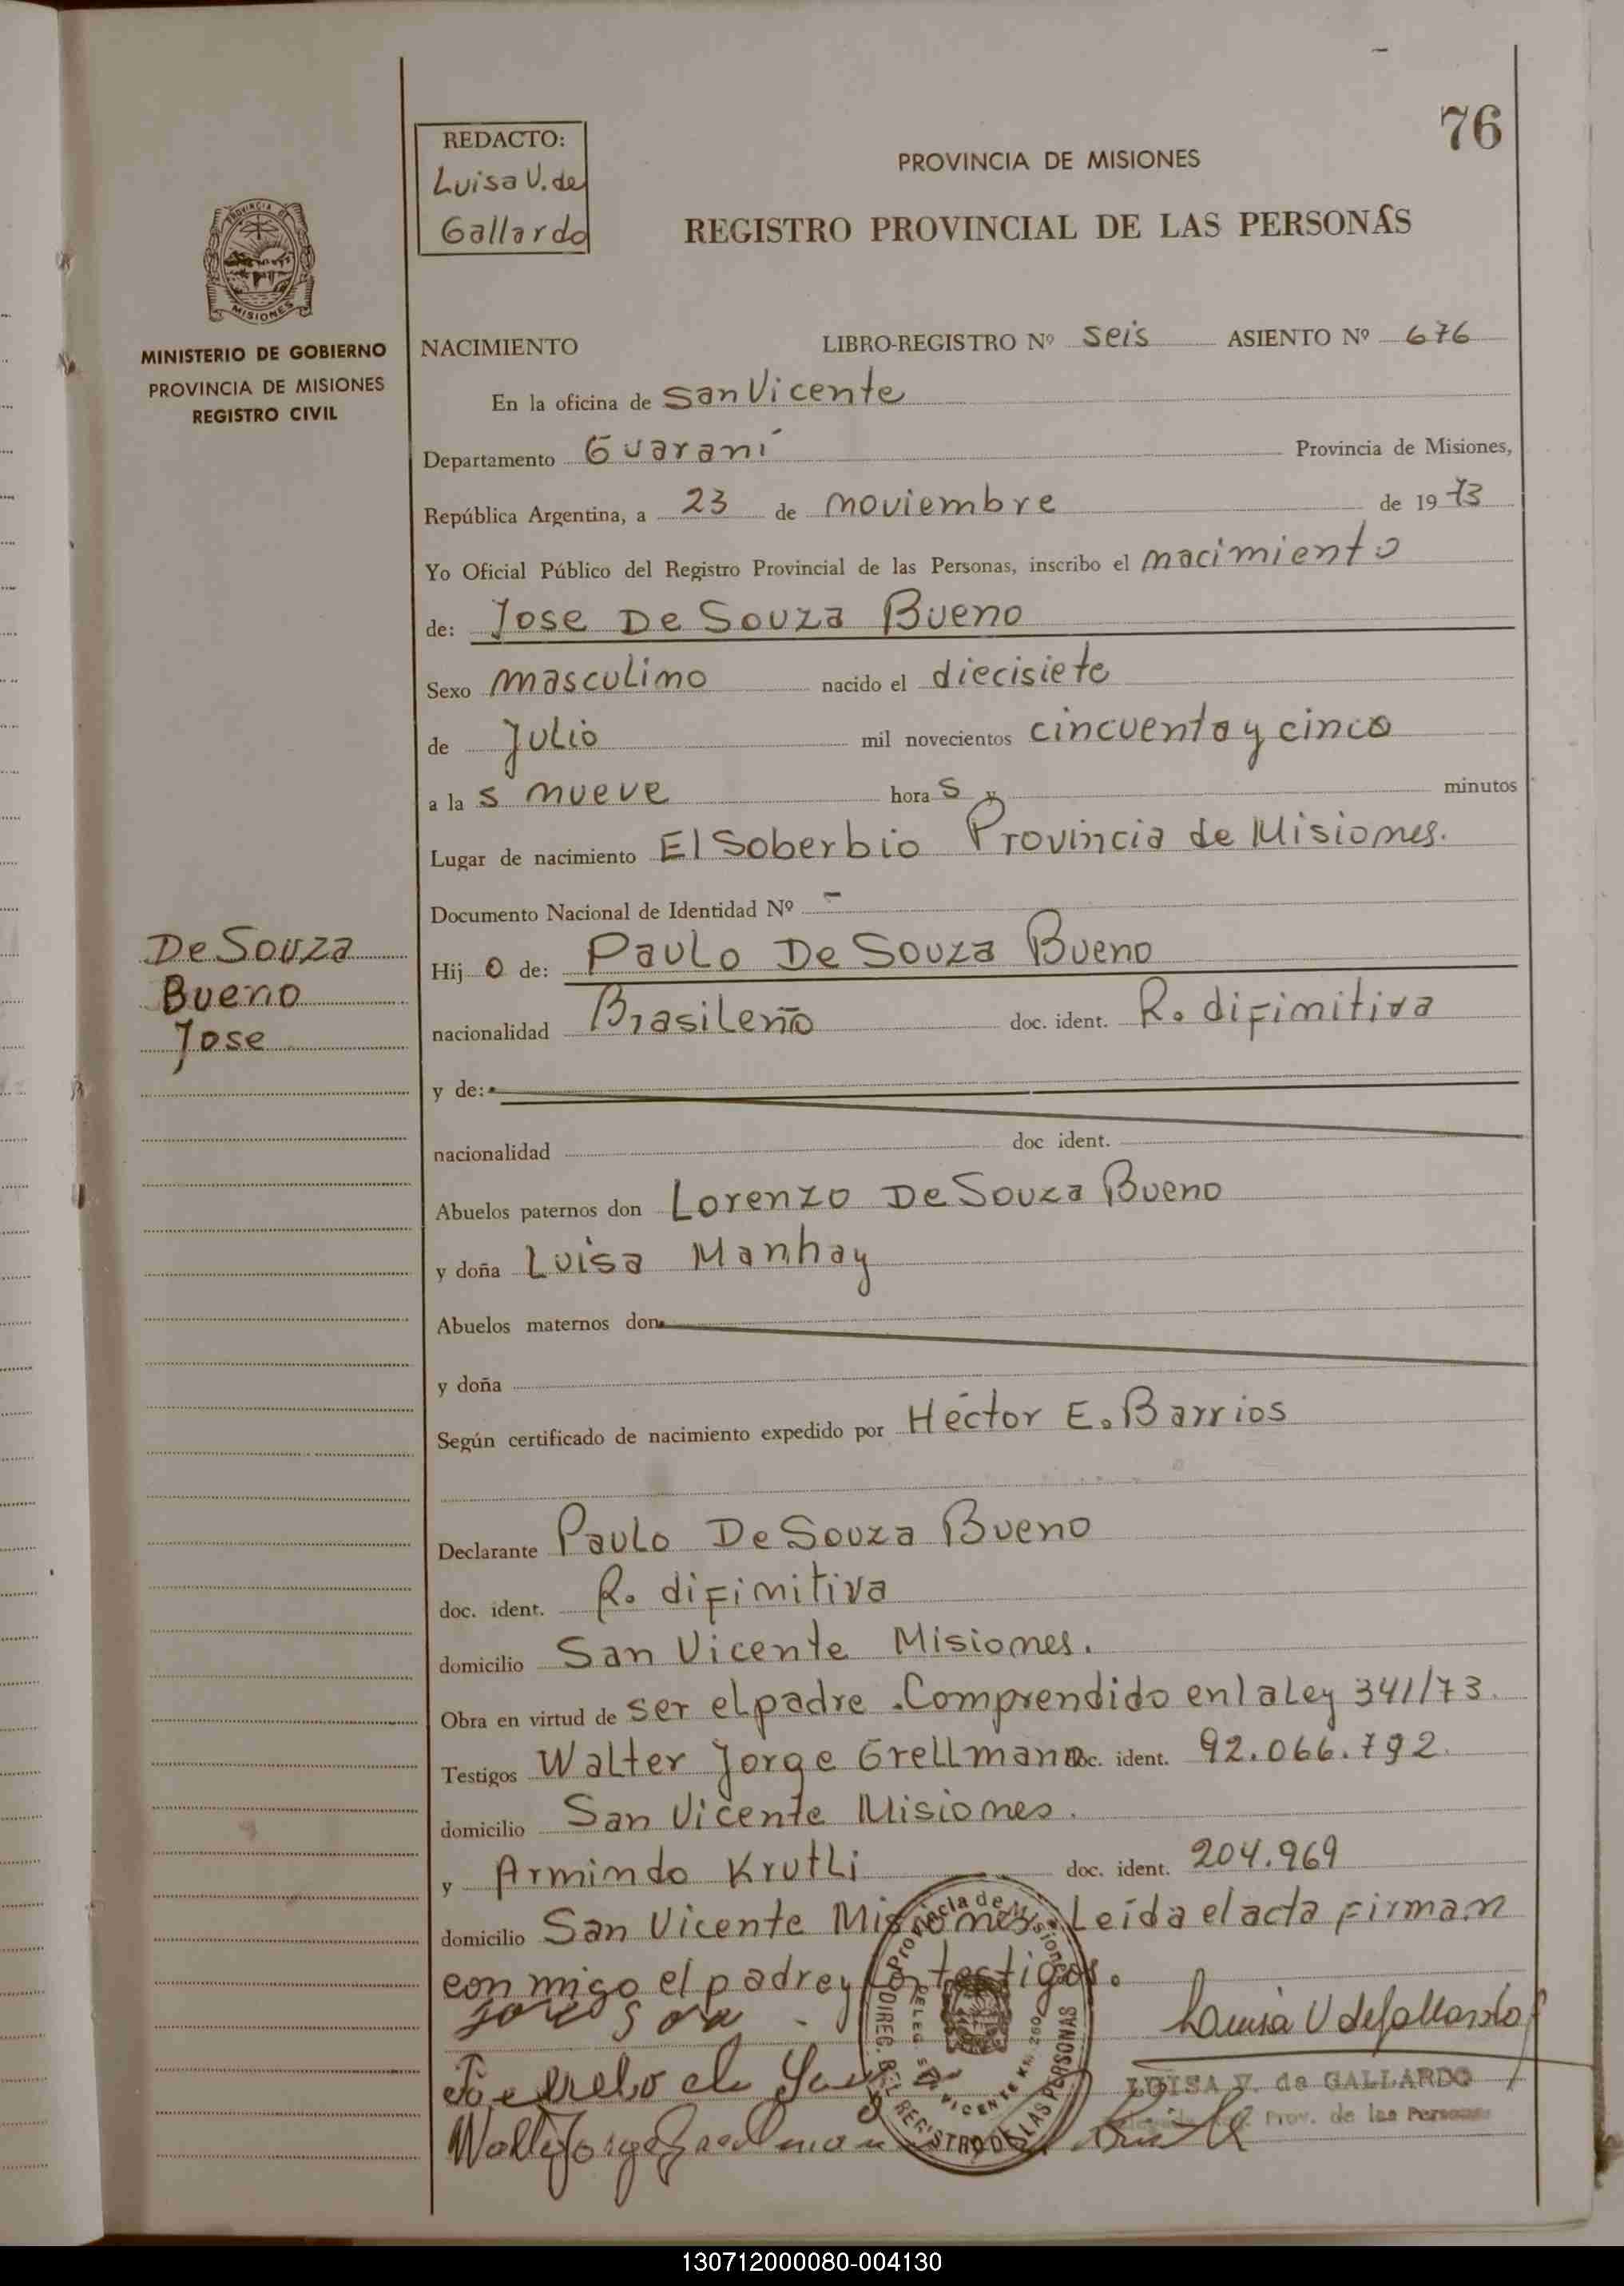 76
REDACTO:
Luisa V. de
Gallardo
PROVINCIA DE MISIONES
REGISTRO PROVINCIAL DE LAS PERSONAS
PROVINCIA DE
MISIONES
MINISTERIO DE GOBIERNO
PROVINCIA DE MISIONES
REGISTRO CIVIL
NACIMIENTO LIBRO-REGISTRO Nº seis ASIENTO Nº 676
En la oficina de San Vicente
Departamento Guaraní Provincia de Misiones,
República Argentina, a 23 de noviembre de 1973
Yo Oficial Público del Registro Provincial de las Personas, inscribo el nacimiento
de: Jose De Souza Bueno
Sexo masculino nacido el diecisiete
de Julio mil novecientos cincuenta y cinco
a la s nueve hora s y minutos
Lugar de nacimiento El Soberbio Provincia de Misiones.
Documento Nacional de Identidad Nº -
De Souza
Bueno
Jose
Hij o de: Paulo De Souza Bueno
nacionalidad Brasileño doc. ident. R. difinitiva
y de:
nacionalidad doc ident.
Abuelos paternos don Lorenzo De Souza Bueno
y doña Luisa Manhay
Abuelos maternos don
y doña
Según certificado de nacimiento expedido por Héctor E. Barrios
Declarante Paulo De Souza Bueno
doc. ident. R. difinitiva
domicilio San Vicente Misiones.
Obra en virtud de ser el padre. Comprendido en la Ley 341/73.
Testigos Walter Jorge Grellmann doc. ident. 92.066.792.
domicilio San Vicente Misiones.
y Armindo Krutli doc. ident. 204.969
domicilio San Vicente Misiones. Leída el acta firman
conmigo el padre y los testigos.
Provincia de Misiones
DIREC. DEL REGISTRO DE LAS PERSONAS
DELEG. SAN VICENTE KM. 260
Luisa V de Gallardo
LUISA V. de GALLARDO
Prov. de las Personas
Walter Jorge Grellmann
130712000080-004130